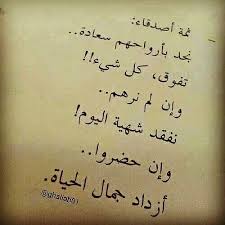 ثمة أصدقاء:
نجد بأرواحهم سعادة..
تفوق، كل شيء!!
وإن لم نرهم..
نفقد شهية اليوم!
وإن حضروا..
أزداد جمال الحياة.